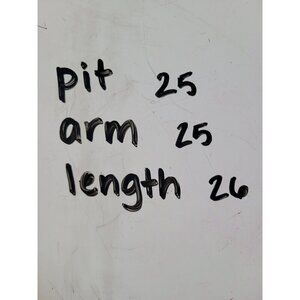 pit 25
arm 25
length 26